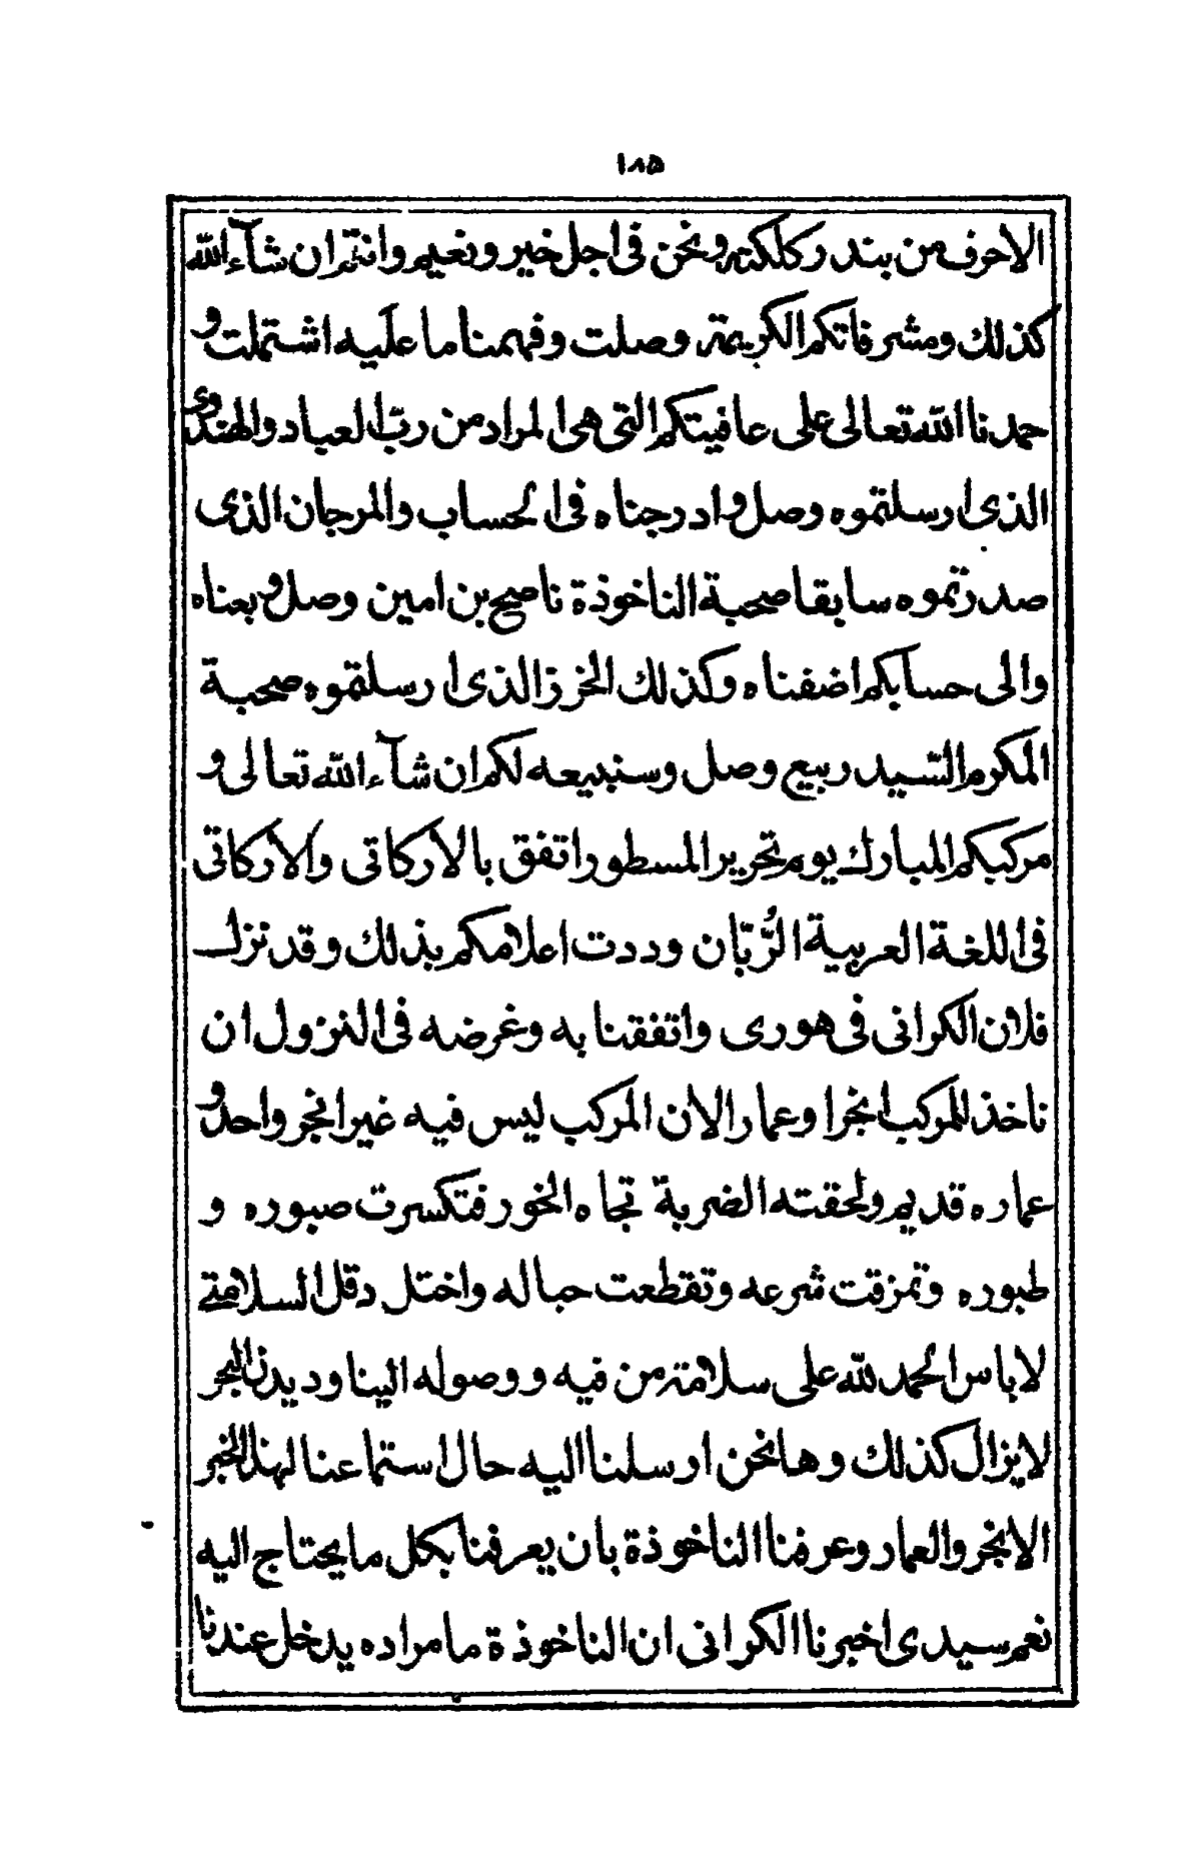 ١٨٥
الاحرف من بندر كلكته ونحن فى اجل خير ونعيم وانتم ان شآء الله
كذلك ومشرفاتكم الكريمة وصلت وفهمنا ما عليه اشتملت و
حمدنا الله تعالى على عافيتكم التى هى المراد من ربّ العباد والهندوى
الذى ارسلتموه وصل وادرجناه فى الحساب والمرجان الذى
صدرتموه سابقا صحبة الناخوذة ناصح بن امين وصل وبعناه
والى حسابكم اضفناه وكذلك الخرز الذى ارسلتموه صحبة
المكرم السّيد ربيع وصل وسنبيعه لكم ان شآء الله تعالى و
مركبكم المبارك يوم تحرير المسطور اتفق بالاركاتى والاركاتى
فى اللغة العربية الرُّبّان وددت اعلامكم بذلك وقد نزل
فلان الكرانى فى هورى واتفقنا به وغرضه فى النزول ان
ناخذ للمركب انجرا وعمارا لان المركب ليس فيه غير انجر واحد و
عماره قديم ولحقته الضربة تجاه الخور فتكسرت صبوره و
طبوره وتمزقت شرعه وتقطعت حباله واختل دقل السلامتى
لاباس الحمد لله على سلامة من فيه ووصوله الينا وديدن البحر
لايزال كذلك وها نحن ارسلنا اليه حال استماعنا لهذا الخبر
الانجر والعمار وعرفنا الناخوذة بان يعرفنا بكل ما يحتاج اليه
نعم سيدى اخبرنا الكرانى ان الناخوذة ما مراده يدخل عندنا